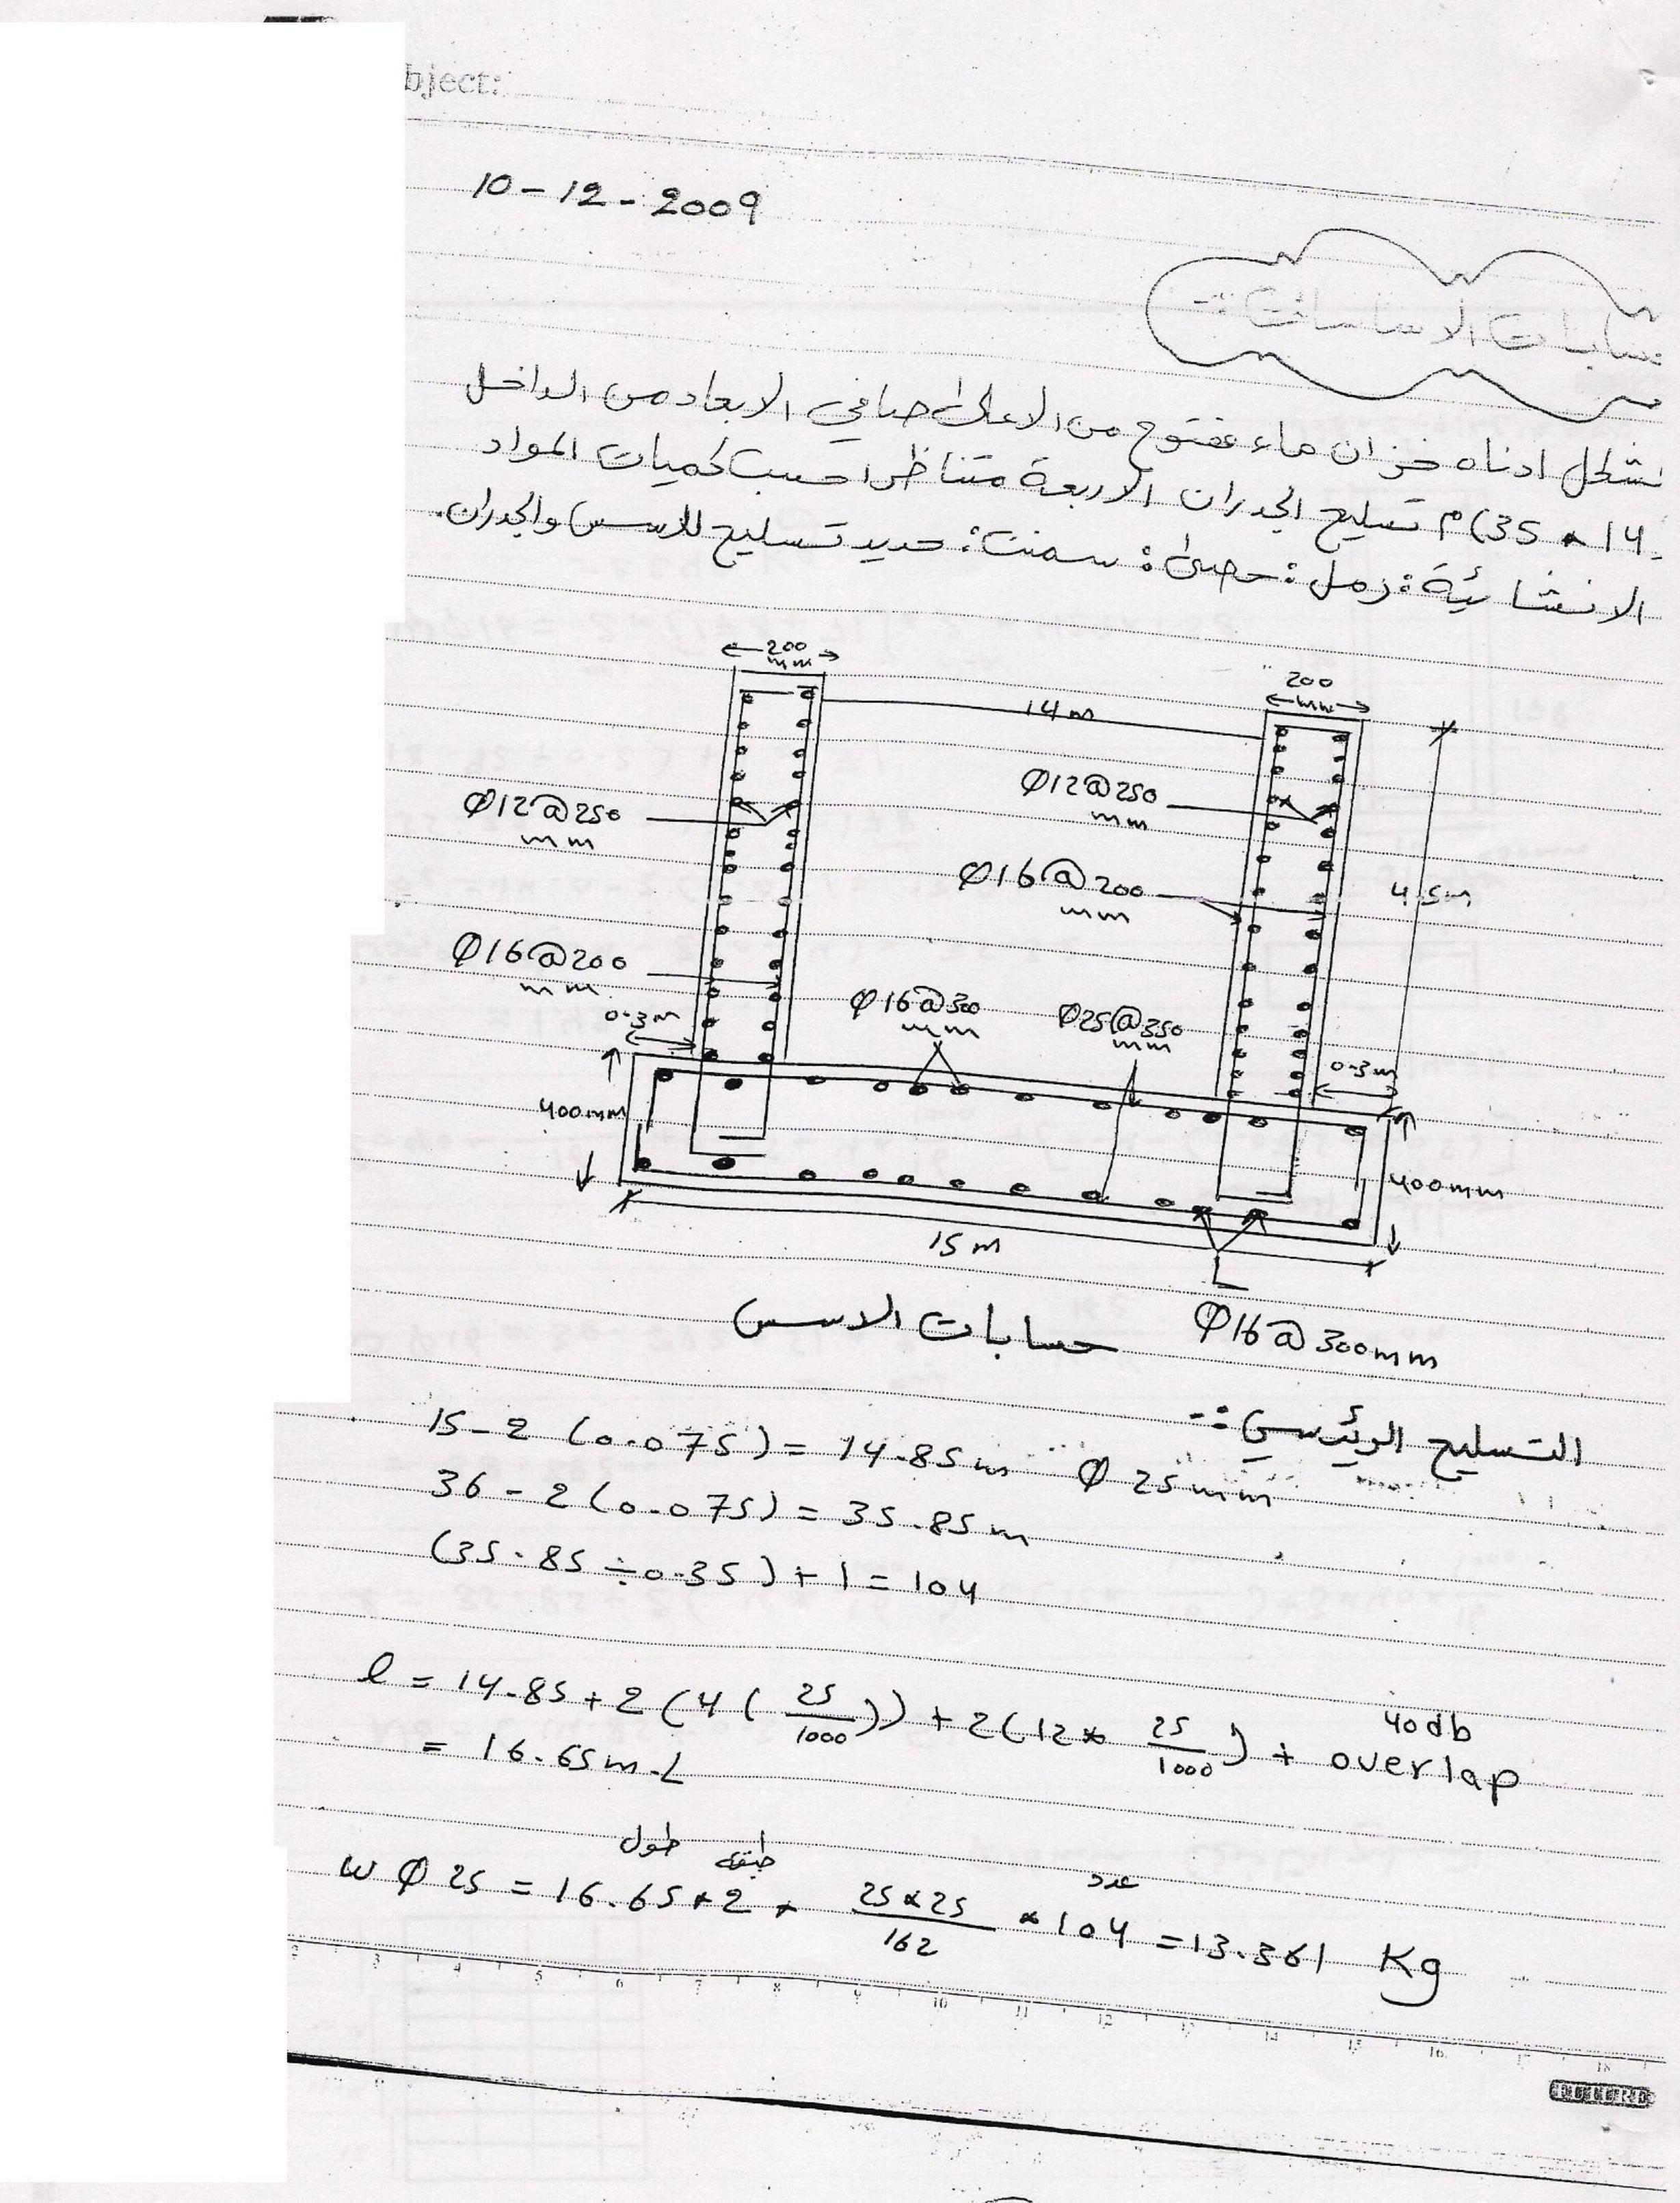 bject:
10-12-2009
سابات الاساسات :-
لشكل ادناه خزان ماء مفتوح من الاعلى صافي الابعاد من الداخل
14 * 35) م تسليح الجدران الاربعة متناظر احسب كميات المواد
الانشائية : رمل : حصى : سمنت : حديد تسليح للاسس والجدران.
200 mm
200 mm
14 m
Ø12@250 mm
Ø12@250 mm
Ø16@200 mm
4.5m
Ø16@200 mm
0.3m
Ø16@300 mm
Ø25@350 mm
0.3m
400mm
400mm
15 m
حسابات الاسس
Ø16@300mm
التسليح الرئيسي :-
15-2 (0.075) = 14.85m Ø 25mm
36 - 2(0.075) = 35.85m
(35.85 ÷ 0.35) + 1 = 104
l = 14.85 + 2 (4 ( 25/1000 )) + 2(12* 25/1000 ) + 40db overlap
= 16.65m.L
طول طبقة عدد
w Ø 25 = 16.65*2 * 25*25/162 * 104 = 13.361 Kg
2 3 4 5 6 7 8 9 10 11 12 13 14 15 16 17 18
FUTURE